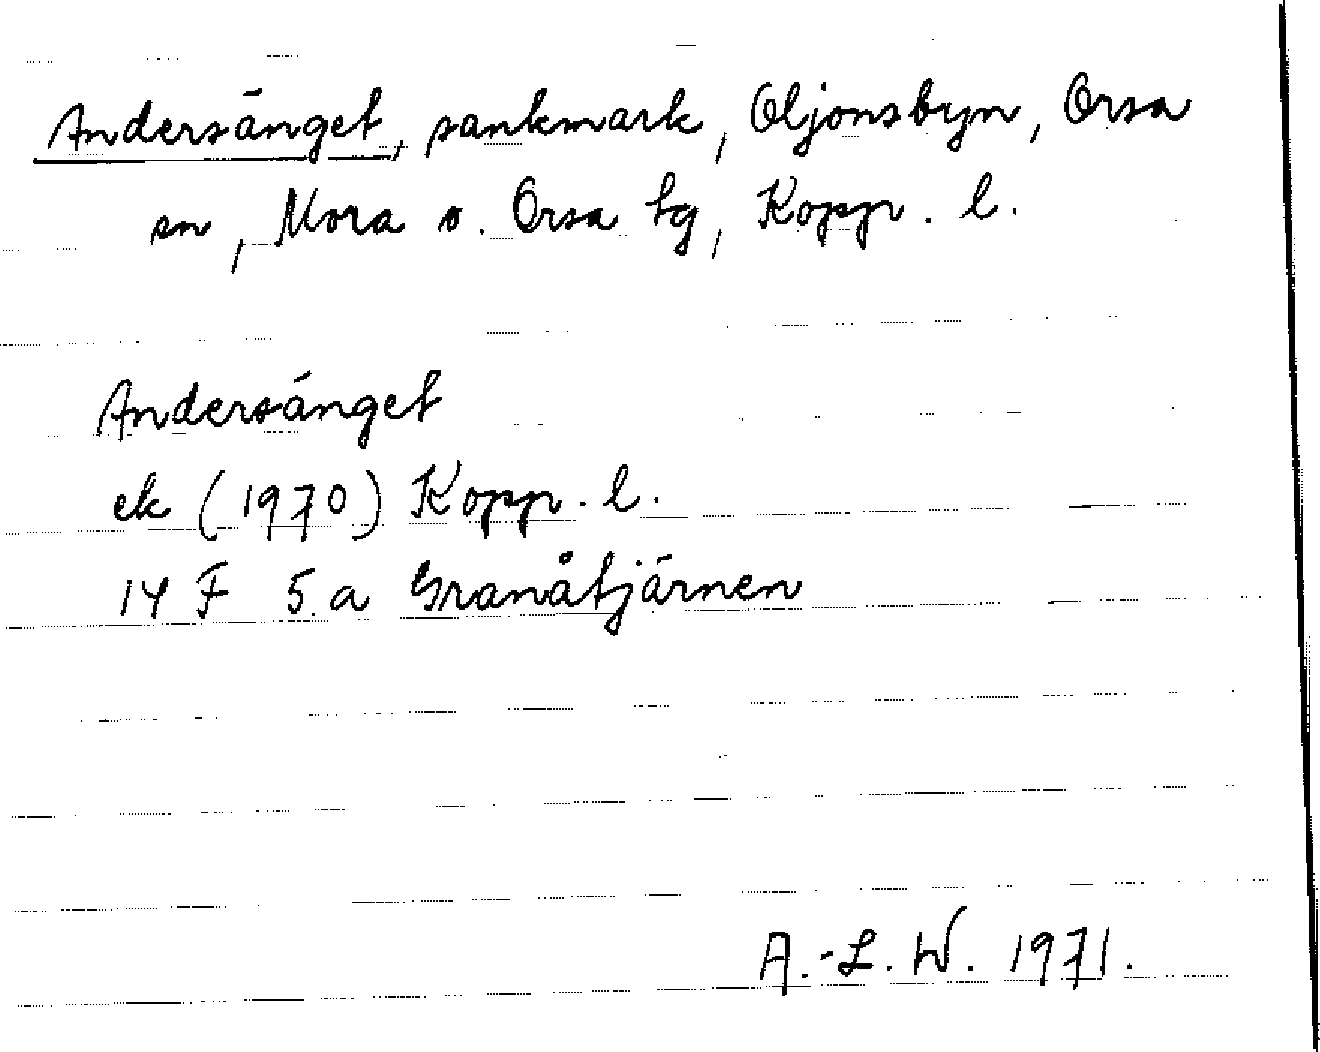 Andersänget, sankmark, Oljonsbyn, Orsa
sn, Mora o. Orsa tg, Kopp. l.
Andersänget
ek (1970) Kopp. l.
14 F 5 a Granåtjärnen
A.-L. W. 1971.